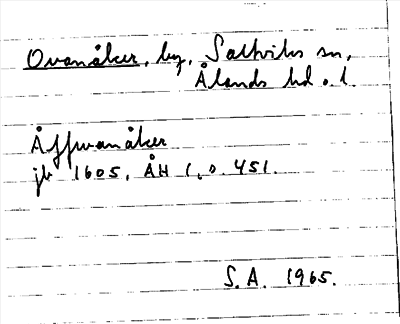 Ovanåker, by, Saltviks sn,
Ålands hd o. l.
Åffwanåker
jb 1605, ÅH I, s. 451.
S. A. 1965.